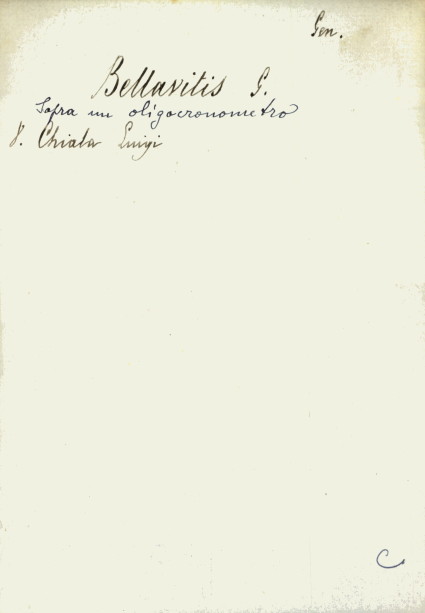 Gen.
Bellavitis G.
Sopra un oligocronometro
V. Chiala Luigi
C